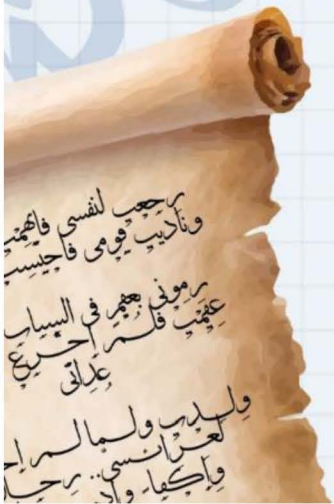 رجعت لنفسى فاتهمت
وناديت قومى فاحتسبت
رمونى بعقم فى الشباب
عقمت فلم أجزع
عداتى
ولدت ولما لم
لعرائسى..
وأكفاء